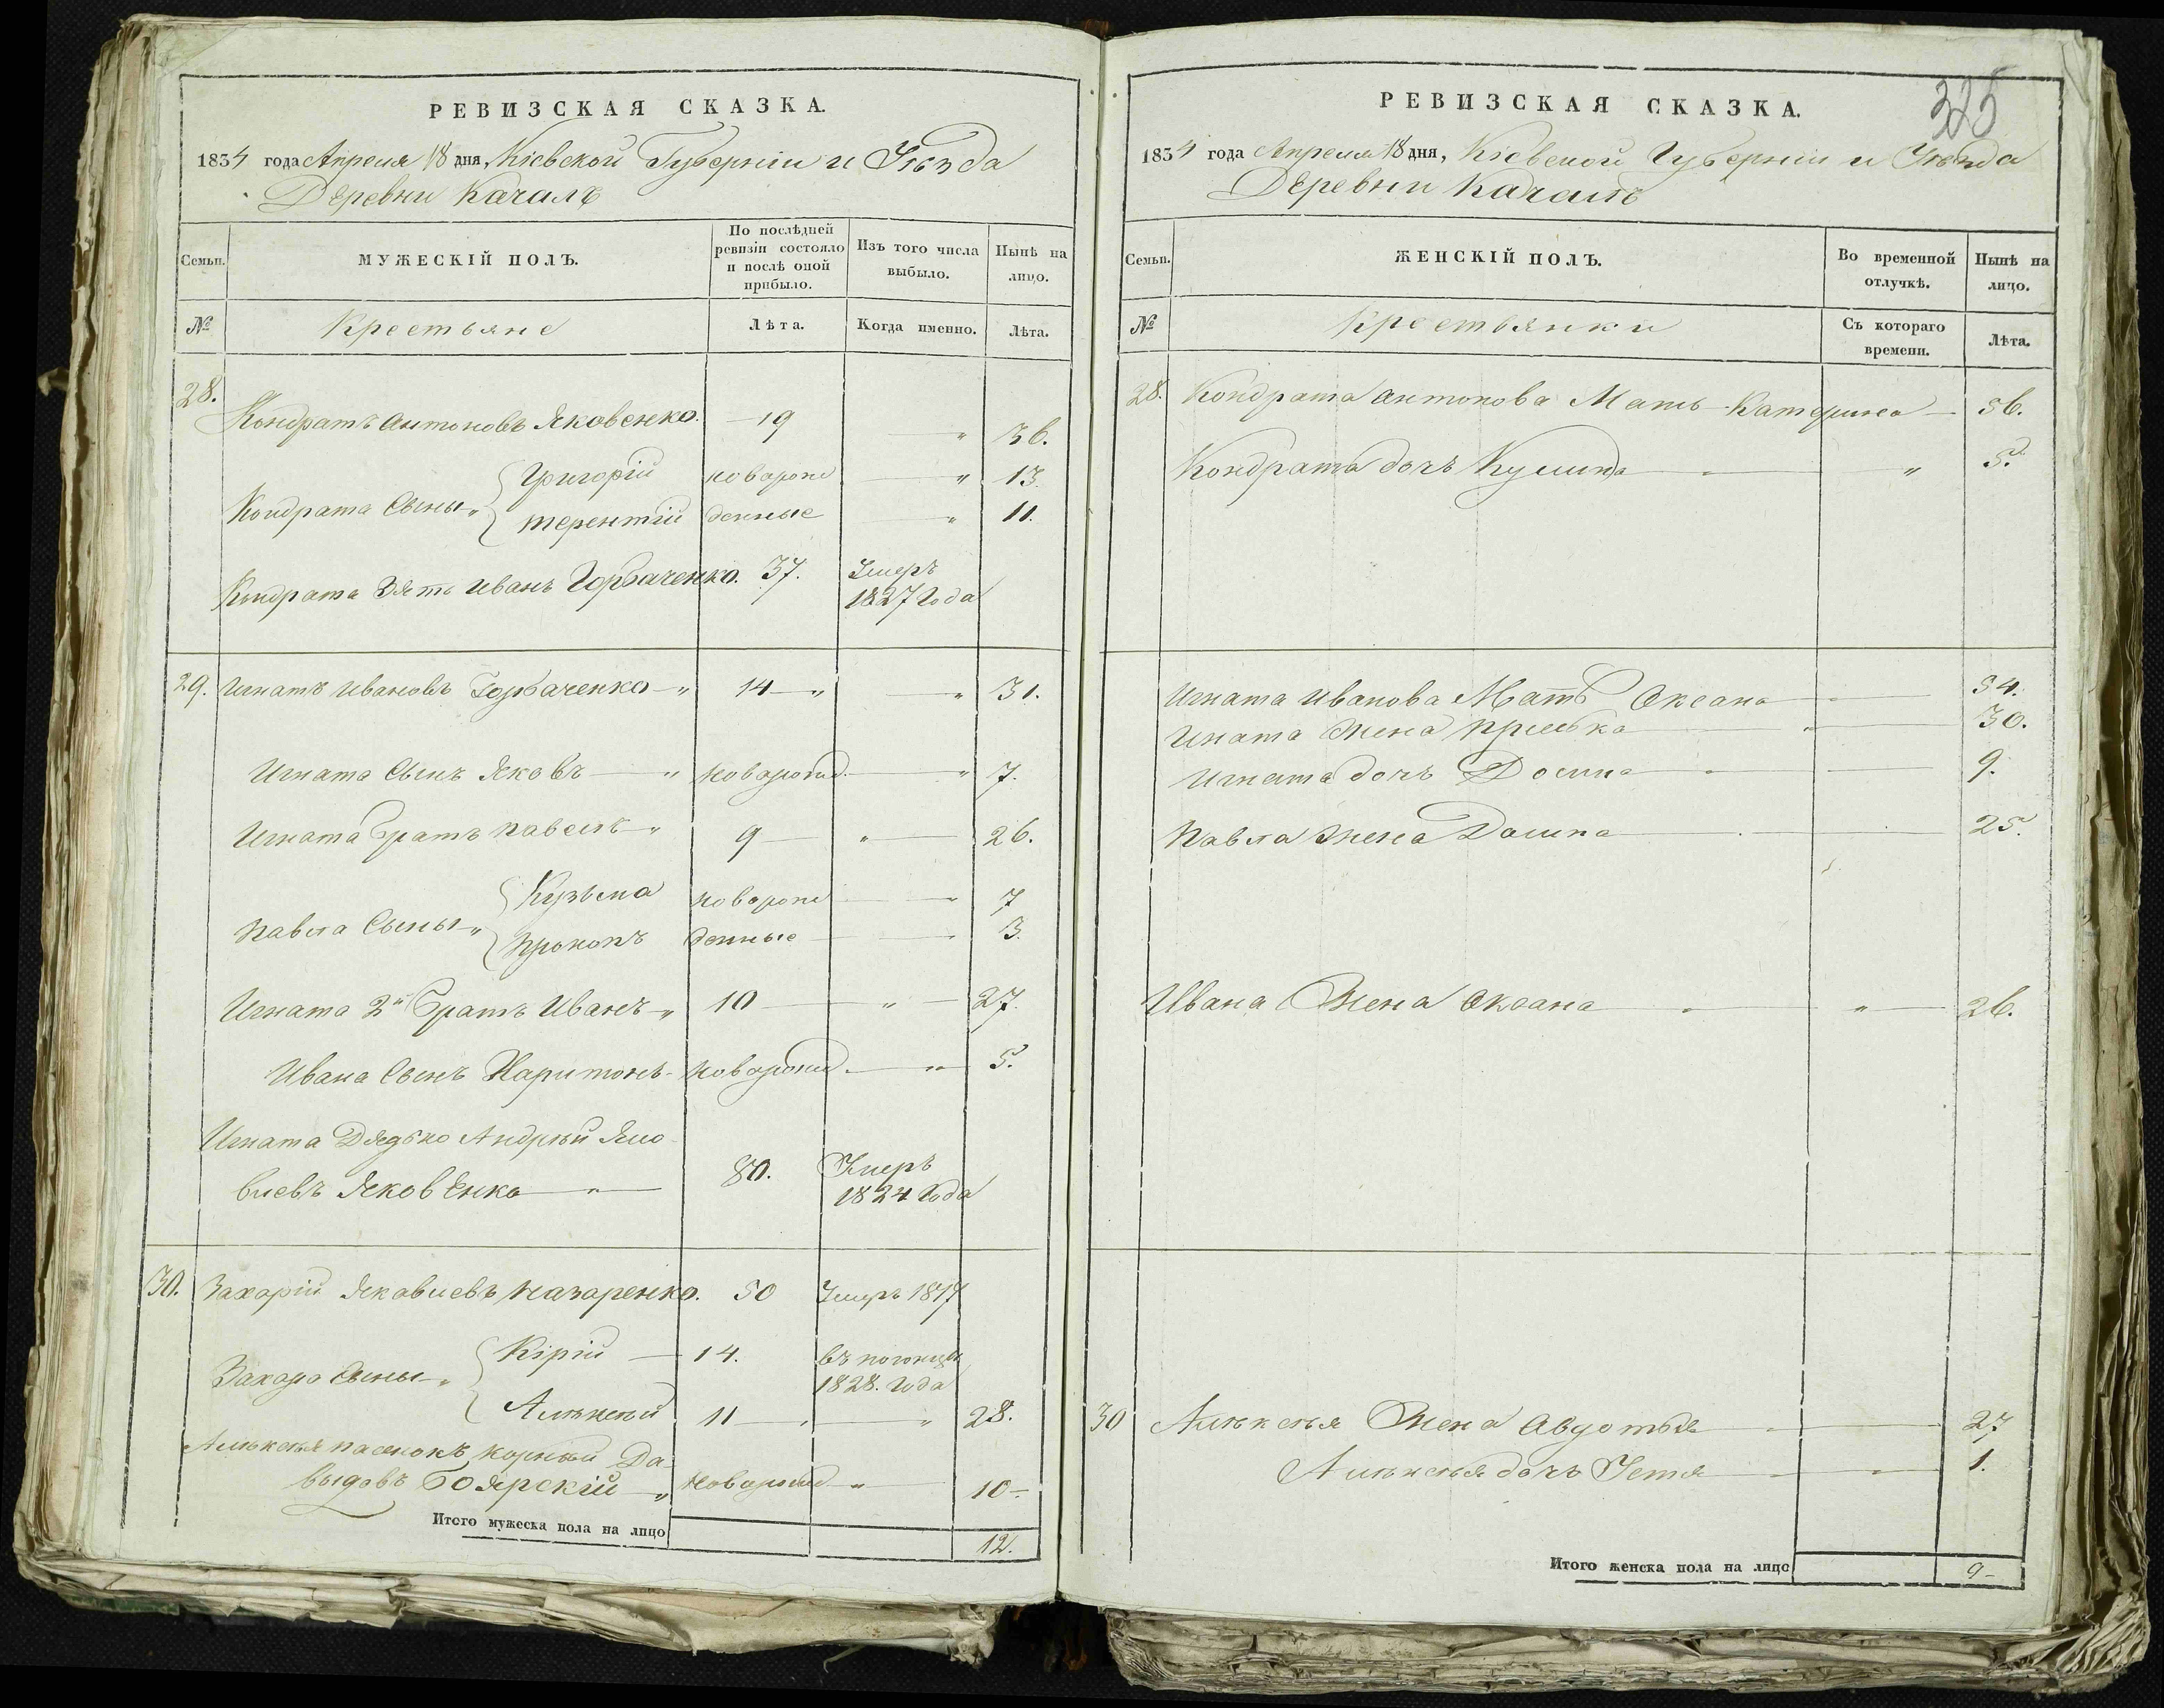 РЕВИЗСКАЯ СКАЗКА.
1834 года Апреля 18 дня, Кіевской Губерніи и Уѣзда
Деревни Качалъ
Семьи.
МУЖЕСКІЙ ПОЛЪ.
По послѣдней ревизіи состояло и послѣ оной прибыло.
Изъ того числа выбыло.
Нынѣ на лицо.
№
Крестьяне
Лѣта.
Когда именно.
Лѣта.
28.
Кондратъ Антоновъ Яковенко. 19 " 36.
Кондрата Сыны "
Григорій новорож " 13.
терентій денные " 11.
Кондрата Зять Иванъ Горбаченко. 37. Умеръ
1827 Года
29. Игнатъ Ивановъ Горбаченко " 14 " " 31.
Игната Сынъ Яковъ " новорожд. " 7.
Игната братъ павелъ " 9 " 26.
Павла Сыны "
Кузьма новорож " 7
прокопъ денные 3.
Игната 2й братъ Иванъ " 10 " 27.
Ивана Сынъ Харитонъ новорожд. " 5.
Игната Дядько Андрѣй Яко
влевъ Яковенко " 80. Умеръ
1824 Года
30. Захарій Яковлевъ Назаренко. 50 Умеръ 1817
Захара Сыны "
Кірій 14. въ погонцы
1828. Года
Алѣксѣй 11 " 28.
Алѣксѣя пасенокъ корнѣй Да
выдовъ Боярскій " новорожд " 10
Итого мужеска пола на лицо
12.
РЕВИЗСКАЯ СКАЗКА.
325
1834 года Апреля 18 дня, Кіевской Губерніи и Уѣзда
Деревни Качалъ
Семьи.
ЖЕНСКІЙ ПОЛЪ.
Во временной отлучкѣ.
Нынѣ на лицо.
№
Крестьянки
Съ котораго времени.
Лѣта.
28. Кондрата Антонова Мать Катерина 56.
Кондрата дочь " 5.
Игната Иванова Мать Оксана 54.
Игната Жена 30.
Игната дочь 9.
Павла Жена 25.
Ивана Жена Оксана " 26.
30 Алѣксѣя Жена Авдотья 27
Алѣксѣя дочь Устя 1.
Итого женска пола на лицо
9